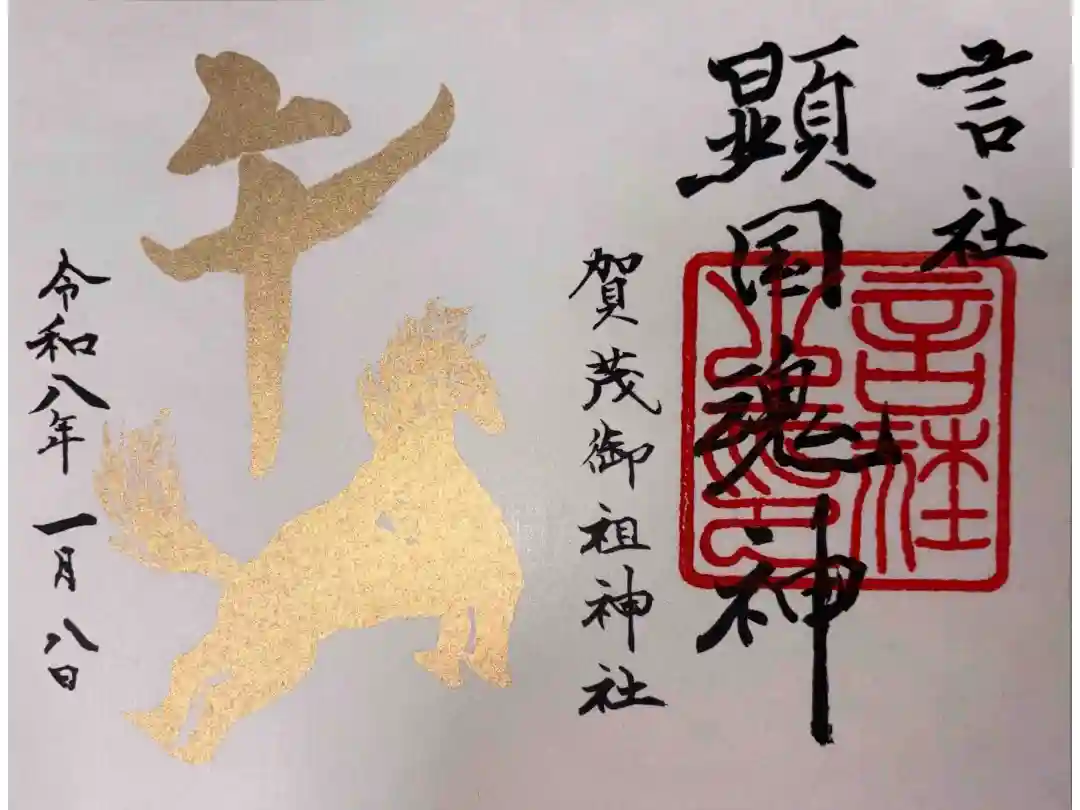 言社
顕国魂神
賀茂御祖神社
午
令和八年一月八日